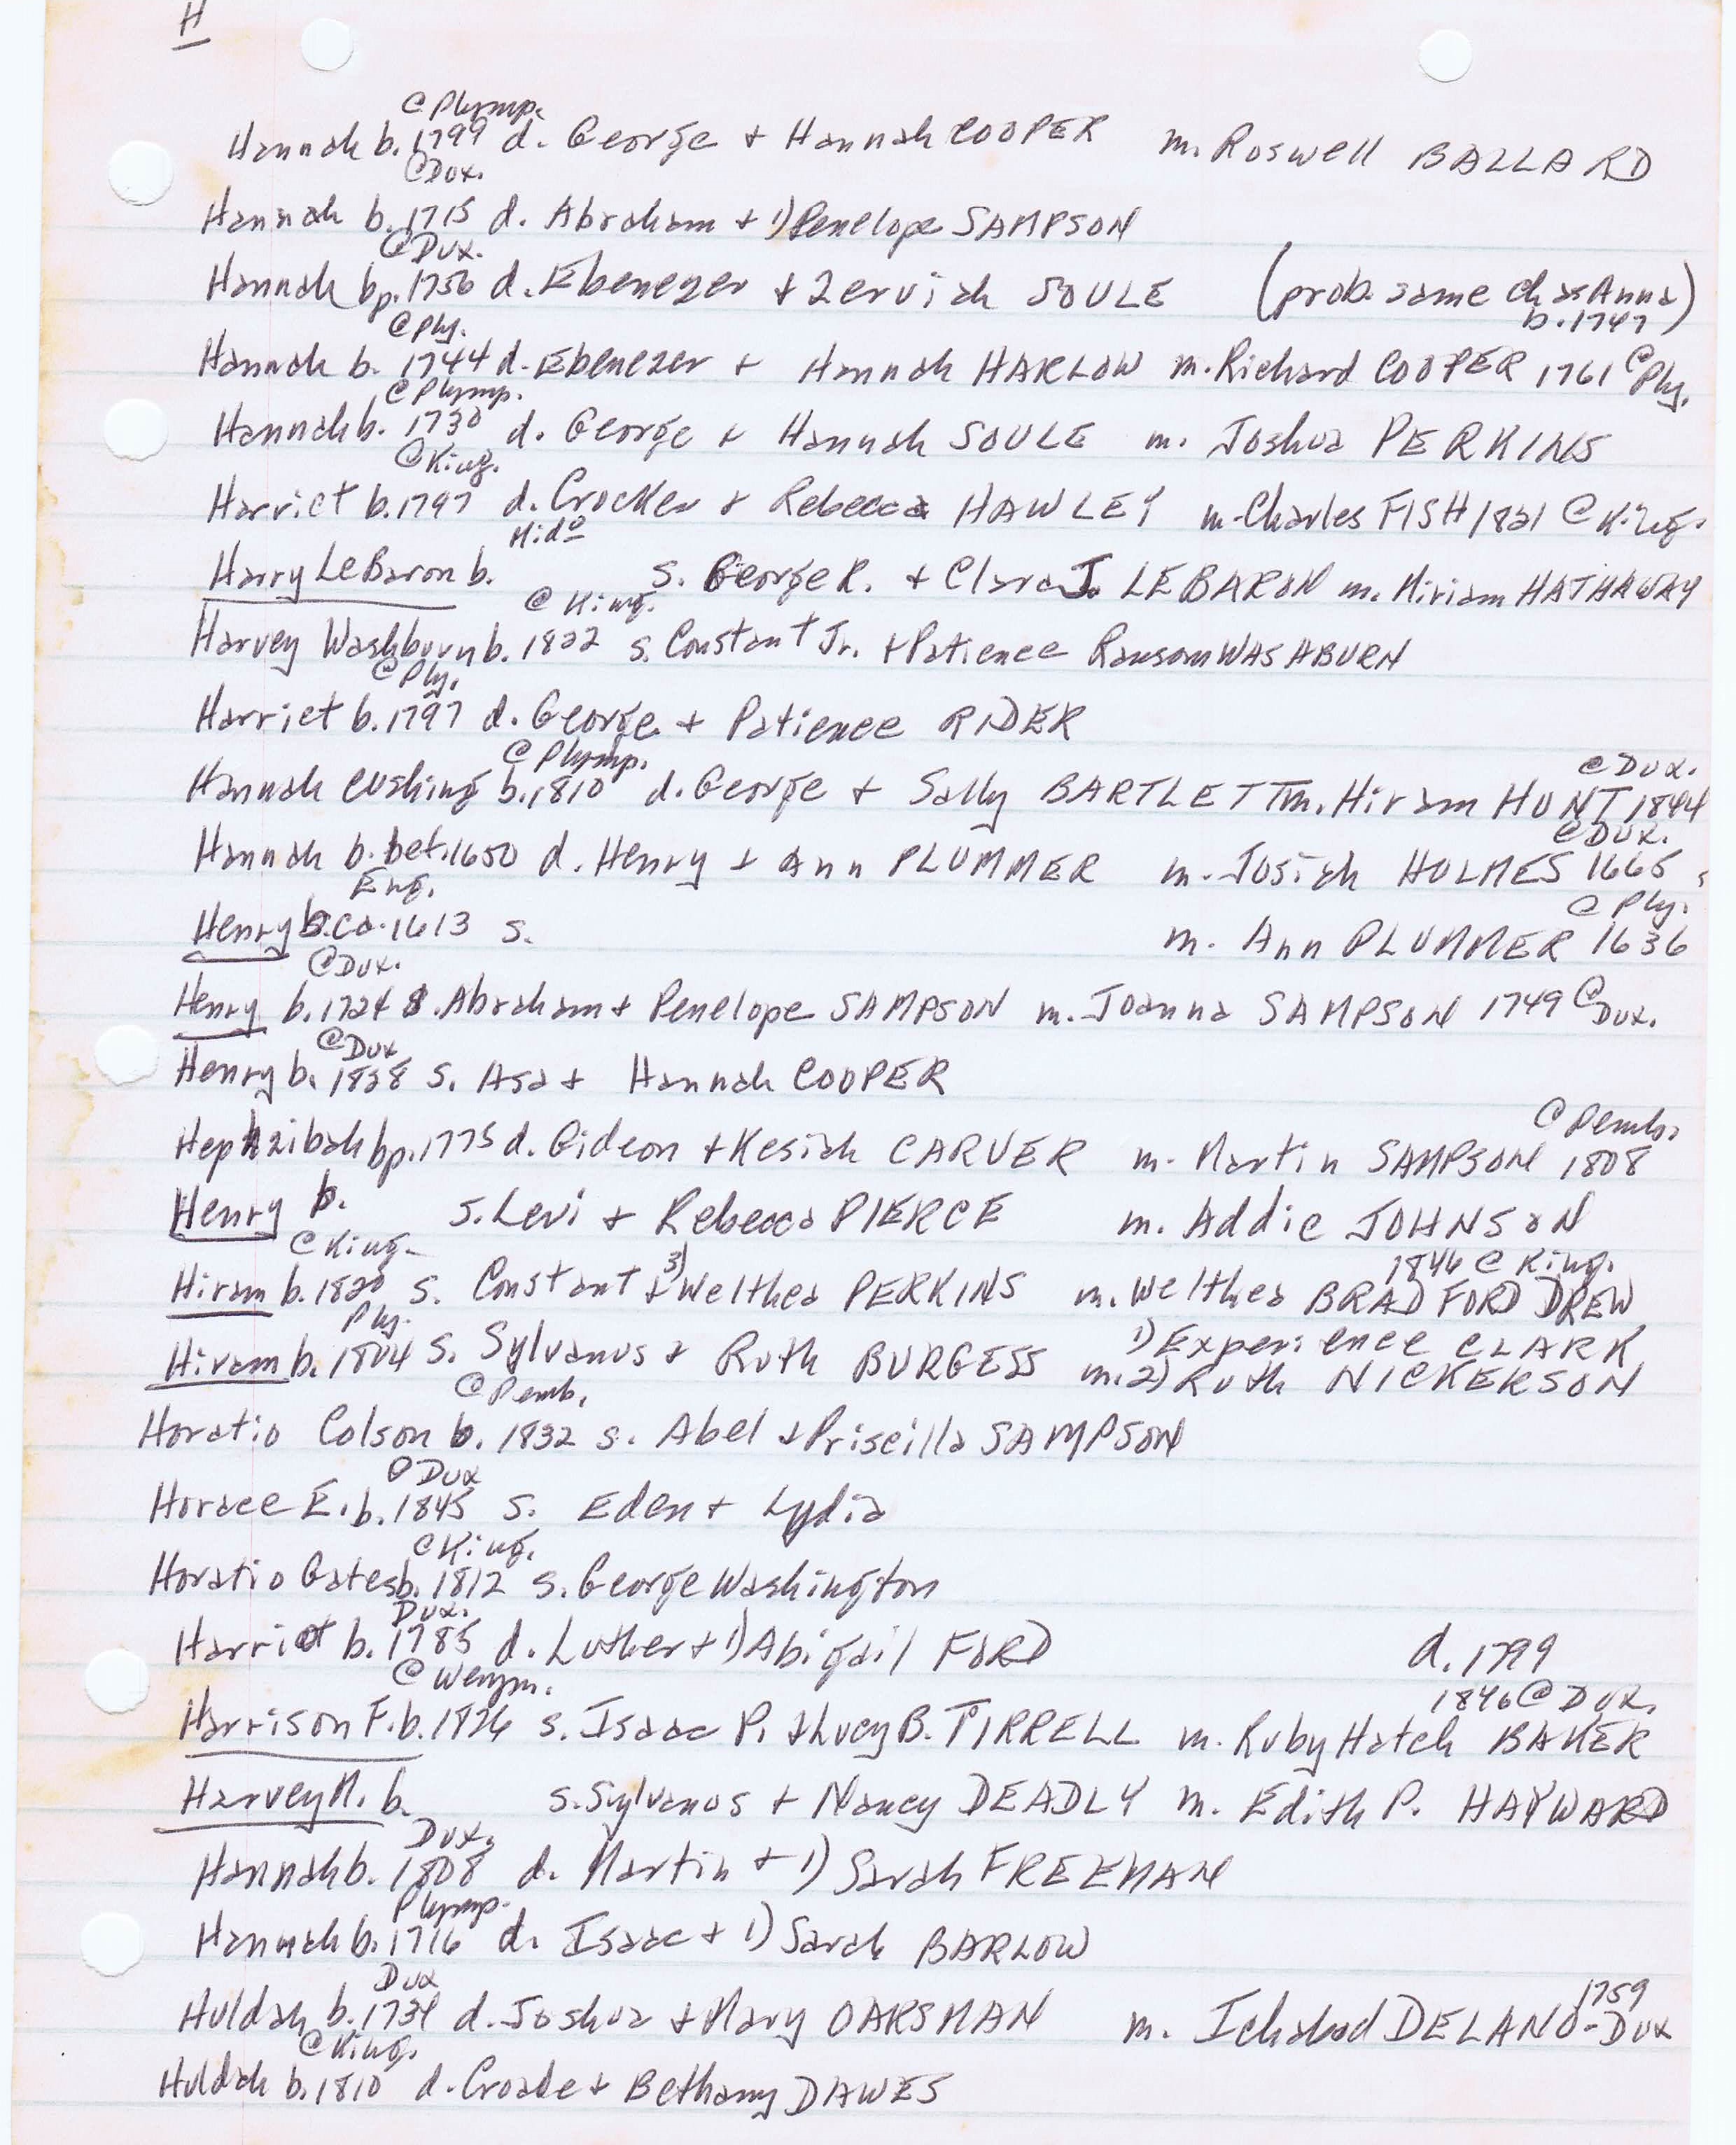 H
@ Plymp.
Hannah b. 1799 d. George + Hannah COOPER m. Roswell BALLARD
@Dux.
Hannah b. 1715 d. Abraham + 1) Penelope SAMPSON
@Dux.
Hannah bp. 1756 d. Ebenezer + Zerviah SOULE (prob. same ch as Anna)
b. 1747
@ Ply.
Hannah b. 1744 d. Ebenezer + Hannah HARLOW m. Richard COOPER 1761 @ Ply.
@ Plymp.
Hannah b. 1730 d. George + Hannah SOULE m. Joshua PERKINS
@King.
Harriet b. 1797 d. Crocker + Rebecca HAWLEY m. Charles FISH 1821 @ King.
Mido
Harry LeBaron b. s. George R. + Clara J. LEBARON m. Miriam HATHAWAY
@ King.
Harvey Washburn b. 1822 s. Constant Jr. + Patience Ransom WASHBURN
@ Ply.
Harriet b. 1797 d. George + Patience RIDER
@ Plymp. @ Dux.
Hannah Cushing b. 1810 d. George + Sally BARTLETT m. Hiram HUNT 1844
@ Dux.
Hannah b. bef. 1650 d. Henry + Ann PLUMMER m. Josiah HOLMES 1665
Eng. @ Ply.
Henry b. ca. 1613 s. m. Ann PLUMMER 1636
@Dux.
Henry b. 1724 s. Abraham + Penelope SAMPSON m. Joanna SAMPSON 1749 @ Dux.
@Dux
Henry b. 1828 s. Asa + Hannah COOPER
@ Pemb.
Hephzibah bp. 1775 d. Gideon + Kesiah CARVER m. Martin SAMPSON 1808
Henry b. s. Levi + Rebecca PIERCE m. Addie JOHNSON
@ King. 1846 @ King.
Hiram b. 1820 s. Constant + 3) Welthea PERKINS m. Welthea BRADFORD DREW
Ply. 1) Experience CLARK
Hiram b. 1804 s. Sylvanus + Ruth BURGESS m. 2) Ruth NICKERSON
@ Pemb.
Horatio Colson b. 1832 s. Abel + Priscilla SAMPSON
@ Dux
Horace E. b. 1845 s. Eden + Lydia
@King.
Horatio Gates b. 1812 s. George Washington
Dux.
Harriet b. 1785 d. Luther + 1) Abigail FORD d. 1799
@ Weym. 1846 @ Dux.
Harrison F. b. 1826 s. Isaac P. + Lucy B. TIRRELL m. Ruby Hatch BAKER
Harvey M. b. s. Sylvanus + Nancy DEADLY m. Edith P. HAYWARD
Dux.
Hannah b. 1808 d. Martin + 1) Sarah FREEMAN
Plymp.
Hannah b. 1716 d. Isaac + 1) Sarah BARLOW
Dux 1759
Huldah b. d. Joshua + Mary OARSMAN m. Ichabod DELANO - Dux
@King.
Huldah b. 1810 d. Croade + Bethany DAWES